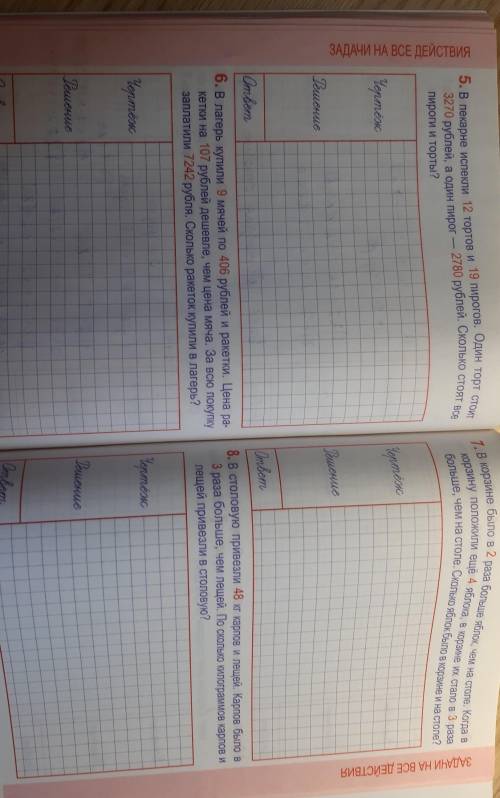 ЗАДАЧИ НА ВСЕ ДЕЙСТВИЯ
5. В пекарне испекли 12 тортов и 19 пирогов. Один торт стоит
3270 рублей, а один пирог — 2780 рублей. Сколько стоят все
пироги и торты?
Чертёж
Решение
Ответ
6. В лагерь купили 9 мячей по 406 рублей и ракетки. Цена ра-
кетки на 107 рублей дешевле, чем цена мяча. За всю покупку
заплатили 7242 рубля. Сколько ракеток купили в лагерь?
Чертёж
Решение
ЗАДАЧИ НА ВСЕ ДЕЙСТВИЯ
7. В корзине было в 2 раза больше яблок, чем на столе. Когда в
корзину положили ещё 4 яблока, в корзине их стало в 3 раза
больше, чем на столе. Сколько яблок было в корзине и на столе?
Чертёж
Решение
Ответ
8. В столовую привезли 48 кг карпов и лещей. Карпов было в
3 раза больше, чем лещей. По сколько килограммов карпов и
лещей привезли в столовую?
Чертёж
Решение
Ответ